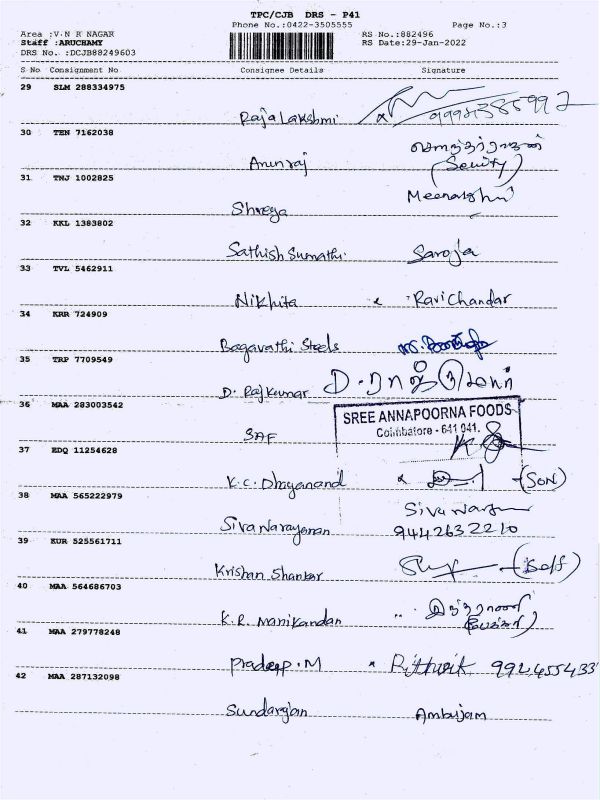 TPC/CJB DRS - P41
Phone No.:0422-3505555 Page No.:3
Area :V N R NAGAR RS No.:882496
Staff :ARUCHAMY RS Date:29-Jan-2022
DRS No. :DCJB88249603
S No Consignment No Consignee Details Signature
29 SLM 288334975
Raja Lakshmi x
30 TEN 7162038
சௌந்தர்ராஜன்
Arunraj
31 TNJ 1002825
Meenakshi
Shreya
32 KKL 1383802
Sathish Sumathi Saroja
33 TVL 5462911
Nikhita x Ravi Chandar
34 KRR 724909
Bagavathi Steels
35 TRP 7709549
D. Rajkumar D. ராஜ்குமார்
36 MAA 283003542
SREE ANNAPOORNA FOODS
Coimbatore - 641 041.
SAF
37 EDQ 11254628
K.C. Dhayanand x (SON)
38 MAA 565222979
Siva Narayanan 9442632210
39 KUR 525561711
Krishan Shankar (Self)
40 MAA 564686703
இந்திராணி
K.R. Manikandan
41 MAA 279778248
Pradeep .M x Rithwik
42 MAA 287132098
Sundarajan Ambujam